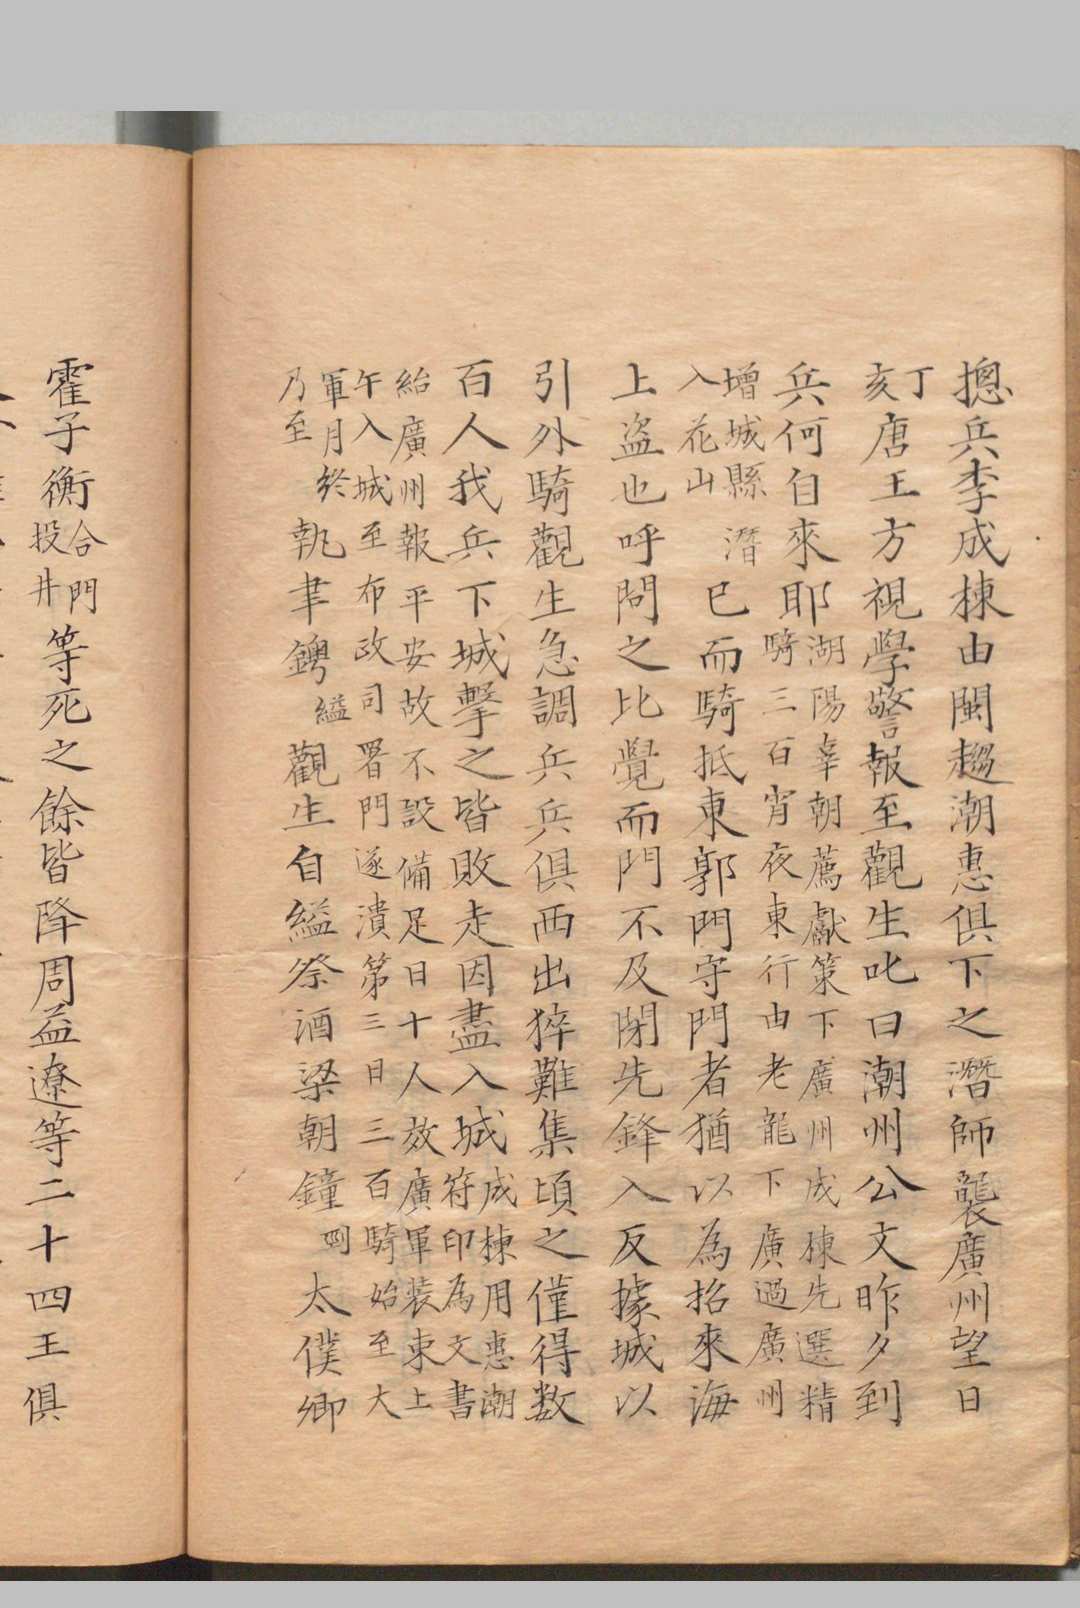 摠兵李成棟由閩趨潮惠俱下之潛師襲廣州望日
丁亥唐王方視學警報至觀生叱曰潮州公文昨夕到
兵何自來耶
湖陽辜朝薦獻策下廣州成棟先選精
騎三百宵夜東行由老龍下廣過廣州
增城縣潛
入花山
已而騎抵東郭門守門者猶以為招來海
上盜也呼問之比覺而門不及閉先鋒入反據城以
引外騎觀生急調兵兵俱西出猝難集頃之僅得数
百人我兵下城擊之皆敗走因盡入城
成棟用惠潮
符印為文書
紿廣州報平安故不設備足日十人效廣軍装束上
午入城至布政司署門遂潰第三日三百騎始至大
軍月終
乃至
執聿縊觀生自縊祭酒梁朝鐘刎太僕卿
霍子衡
合門
投井
等死之餘皆降周益遼等二十四王俱